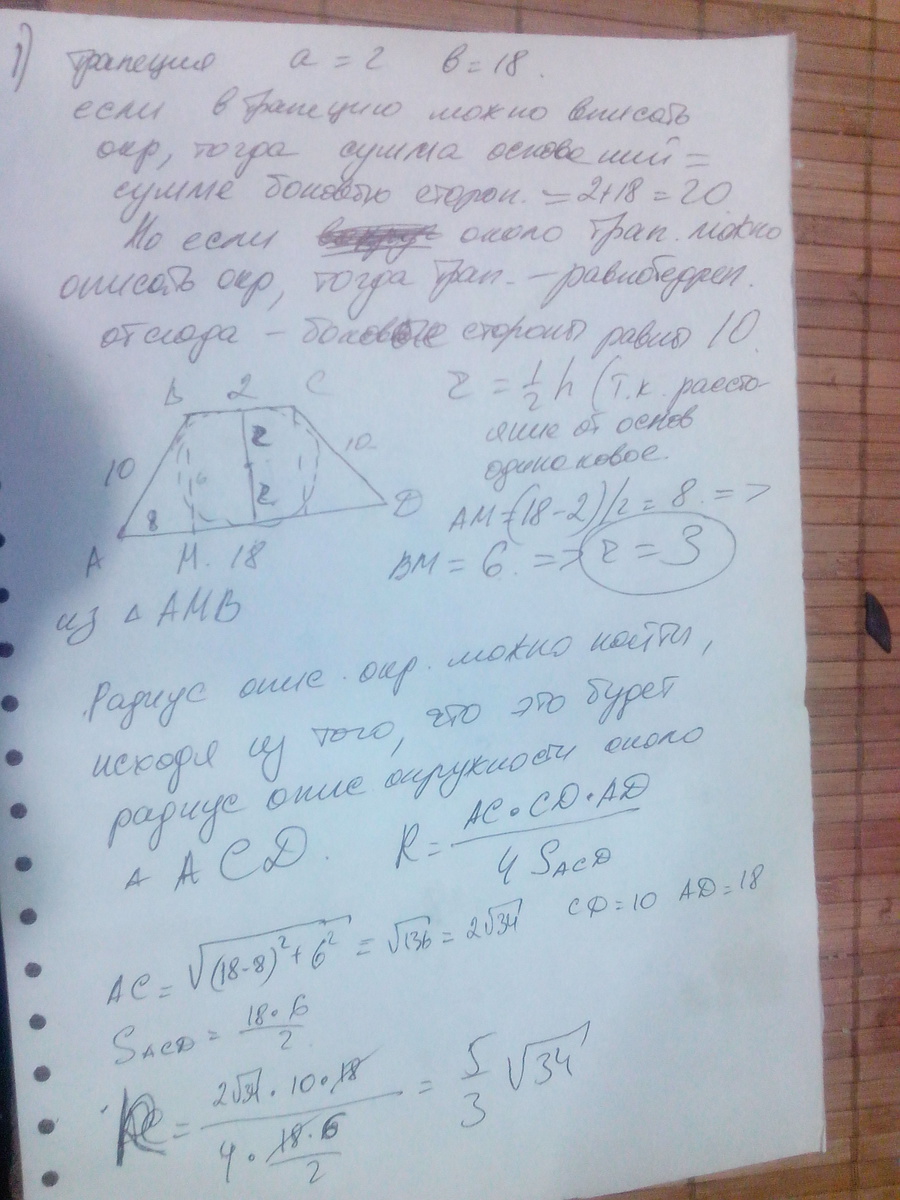 1) трапеция a = 2 в = 18.
если в трапецию можно вписать
окр, тогда сумма оснований =
сумме боковых сторон. = 2+18 = 20
Но если около трап. можно
описать окр, тогда трап. – равнобедрен.
отсюда – боковые стороны равны 10.
B 2 C
10 r r 10
8
A M. 18 D
из △ AMB
r = 1/2 h (т.к. расстo-
яние от основ
одинаковое.
AM = (18-2)/2 = 8. =>
BM = 6. => r = 3
Радиус опис. окр. можно найти,
исходя из того, что это будет
радиус опис окружности около
△ ACD. R = AC • CD • AD / 4 S ACD
AC = √((18-8)² + 6²) = √136 = 2√34 CD = 10 AD = 18
S ACD = 18 • 6 / 2
R = 2√34 • 10 • 18 / 4 • 18 • 6 / 2 = 5/3 √34